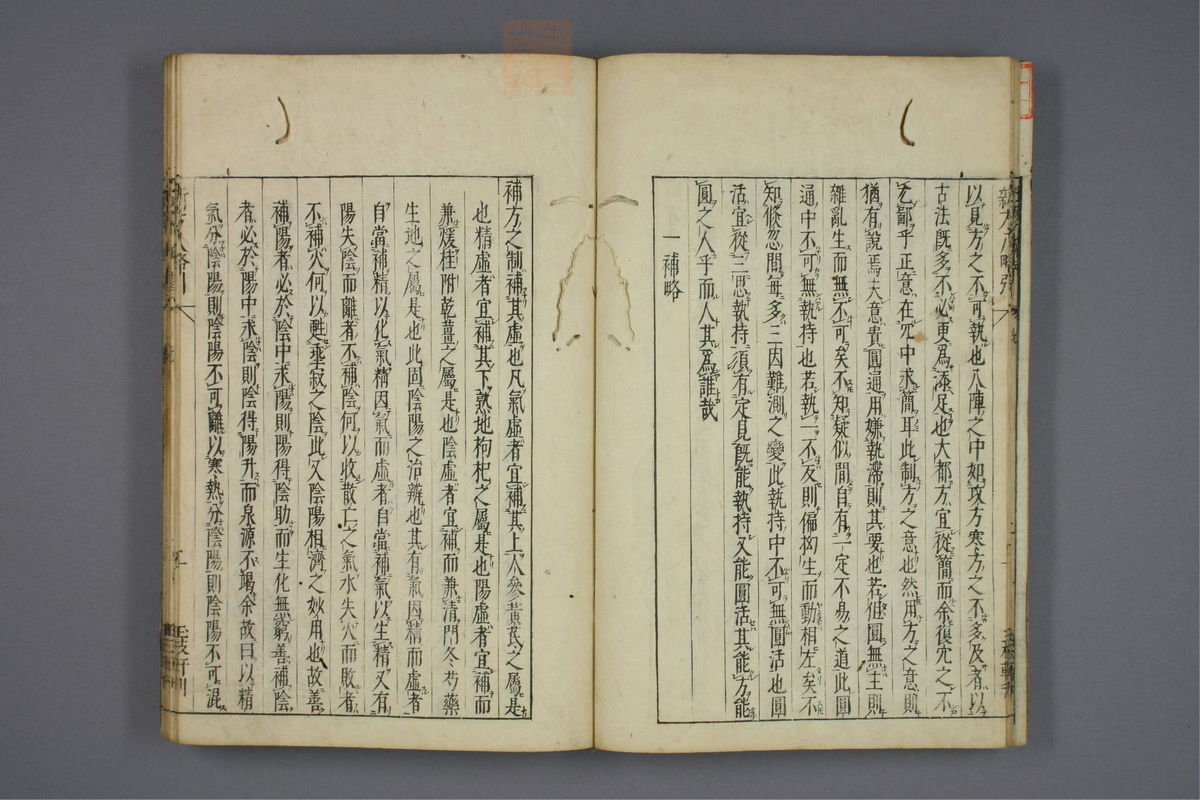 以見方之不可執也入陣之中如攻方寒方之不多及者以
古法既多不必更爲添足也大都方宜從簡而余復冗之不
乞鄙乎正意在冗中求簡耳此制方之意也然用方之意則
猶有說焉夫意貴圓通用嫌執滯則其要也若但圓無主則
雜亂生而無不可矣不知疑似間自有一定不易之道此圓
通中不可無執持也若執一不反則偏拘生而動相左矣不
知倏忽間每多三因難測之變此執持中不可無圓活也圓
活宜從三思執持須有定見既能執持又能圓活其能方能
圓之人乎而人其爲誰哉
一補略
補方之制補其虛也凡氣虛者宜補其上人參黃芪之屬是
也精虛者宜補其下熟地枸杞之屬是也陽虛者宜補而
兼煖桂附乾薑之屬是也陰虛者宜補而兼清門冬芍藥
生地之屬是也此固陰陽之治辨也其有氣因精而虛者
自當補精以化氣精因氣而虛者自當補氣以生精又有
陽失陰而離者不補陰何以收散亡之氣水失火而敗者
不補火何以甦垂寂之陰此又陰陽相濟之妙用也故善
補陽者必於陰中求陽則陽得陰助而生化無窮善補陰
者必於陽中求陰則陰得陽升而泉源不竭余故曰以精
氣分陰陽則陰陽不可離以寒熱分陰陽則陰陽不可混